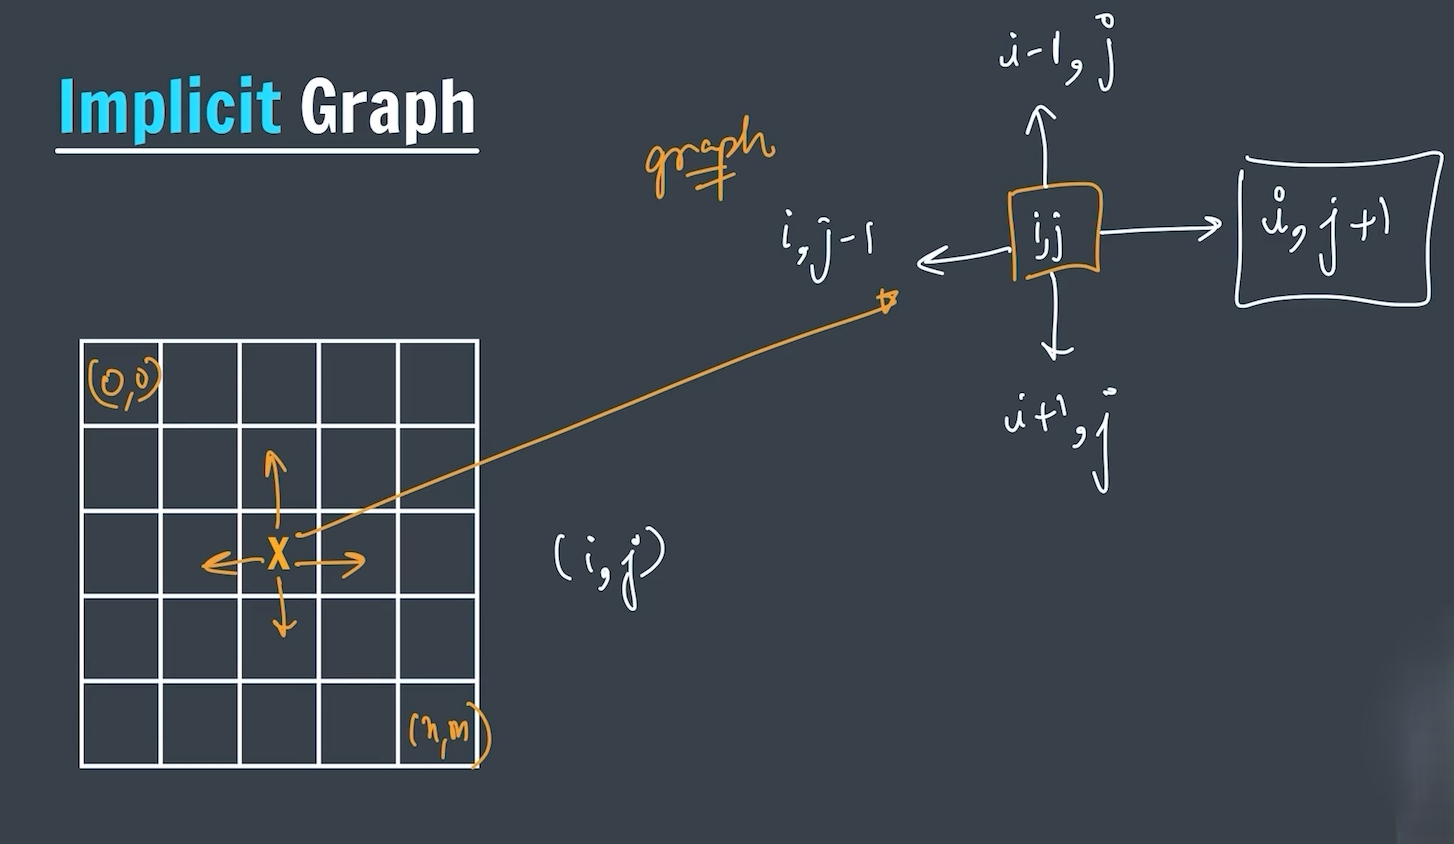 Implicit Graph
graph
i-1, j
i, j-1
i,j
i, j+1
i+1, j
(0,0)
X
(i,j)
(n,m)